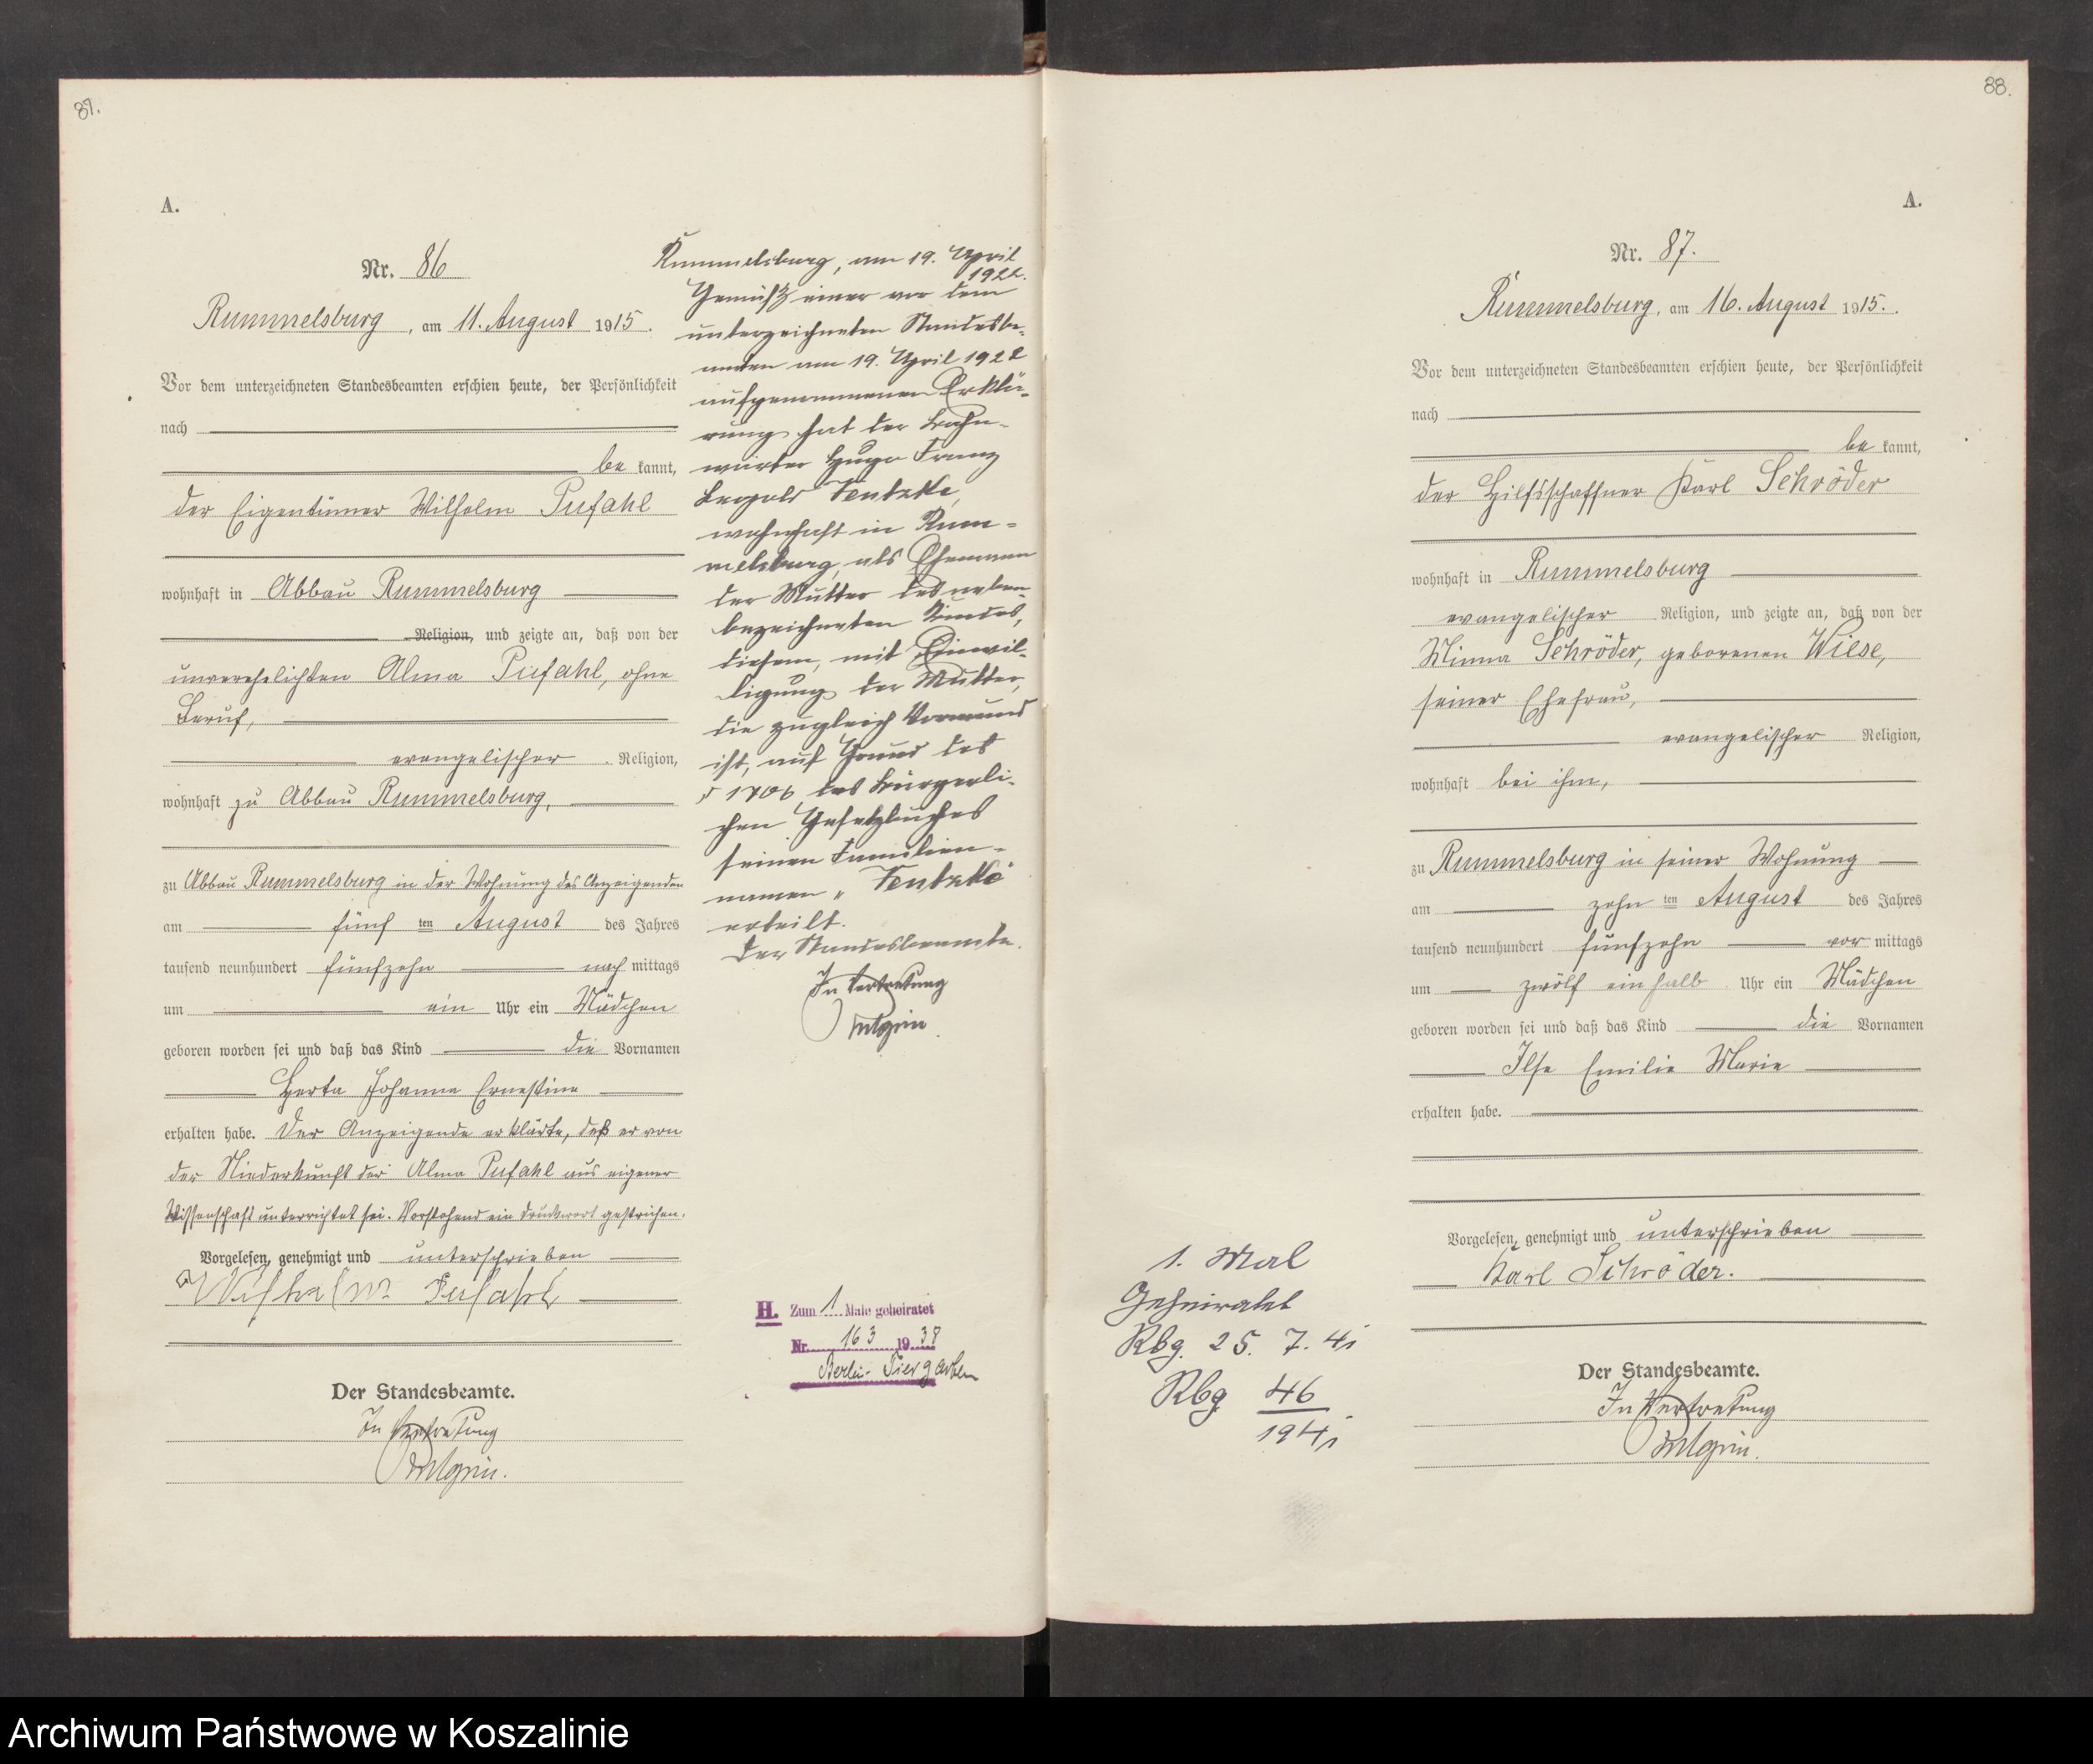 87.
A.
Nr. 86
Rummelsburg, am 11. August 1915.
Vor dem unterzeichneten Standesbeamten erschien heute, der Persönlichkeit
nach
be kannt,
der Eigentümer Wilhelm Pufahl
wohnhaft in Abbau Rummelsburg
Religion, und zeigte an, daß von der
unverehelichten Alma Pufahl, ohne
Beruf,
evangelischer Religion,
wohnhaft zu Abbau Rummelsburg,
zu Abbau Rummelsburg in der Wohnung des Anzeigenden
am fünf ten August des Jahres
tausend neunhundert fünfzehn nach mittags
um ein Uhr ein Mädchen
geboren worden sei und daß das Kind die Vornamen
Herta Johanna Ernestine
erhalten habe. Der Anzeigende erklärte, daß er von
der Niederkunft der Alma Pufahl aus eigener
Wissenschaft unterrichtet sei. Vorstehend ein Druckwort gestrichen.
Vorgelesen, genehmigt und unterschrieben
Wilhelm Pufahl
Der Standesbeamte.
In Vertretung
Rummelsburg, am 19. April
1922.
Gemäß einer vor dem
unterzeichneten Standesbe-
amten am 19. April 1922
aufgenommenen Erklä-
rung hat der Bahn-
wärter Hugo Franz
Leopold
wohnhaft in Rum-
melsburg, als Ehemann
der Mutter des neben-
bezeichneten Kindes,
diesem, mit Einwil-
ligung der Mutter,
die zugleich Vormund
ist, auf Grund des
§ 1706 des Bürgerli-
chen Gesetzbuches
seinen Familien-
namen „
erteilt.
Der Standesbeamte.
In Vertretung
H. Zum 1 Male geheiratet
Nr. 163 1938
Berlin-Tiergarten
88.
A.
Nr. 87.
Rummelsburg, am 16. August 1915.
Vor dem unterzeichneten Standesbeamten erschien heute, der Persönlichkeit
nach
be kannt,
der Hilfsschaffner Karl Schröder
wohnhaft in Rummelsburg
evangelischer Religion, und zeigte an, daß von der
Minna Schröder, geborenen Wiese,
seiner Ehefrau,
evangelischer Religion,
wohnhaft bei ihm,
zu Rummelsburg in seiner Wohnung
am zehn ten August des Jahres
tausend neunhundert fünfzehn vor mittags
um zwölf einhalb Uhr ein Mädchen
geboren worden sei und daß das Kind die Vornamen
Ilse Emilie Marie
erhalten habe.
Vorgelesen, genehmigt und unterschrieben
Karl Schröder.
Der Standesbeamte.
In Vertretung
1. Mal
Geheiratet
Rbg. 25. 7. 41
Rbg 46
1941
Archiwum Państwowe w Koszalinie